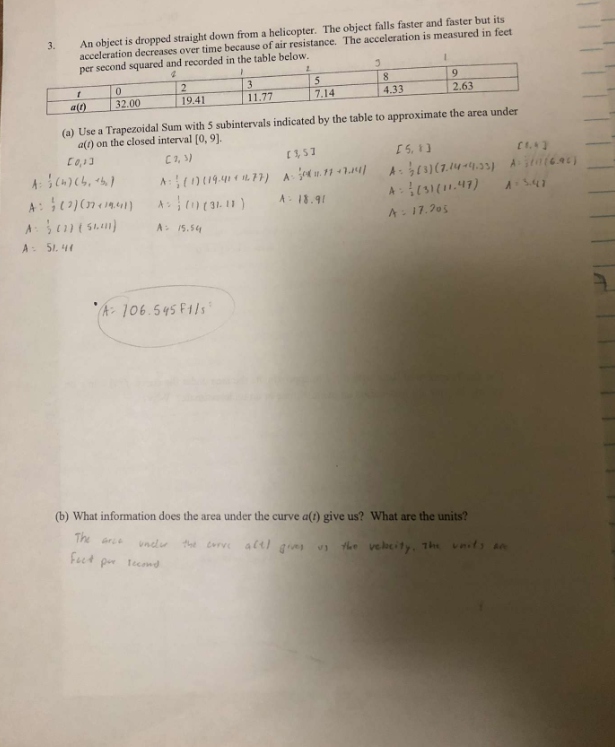 3. An object is dropped straight down from a helicopter. The object falls faster and faster but its
acceleration decreases over time because of air resistance. The acceleration is measured in feet
per second squared and recorded in the table below.
2 1 2 3 1
t 0 2 3 5 8 9
a(t) 32.00 19.41 11.77 7.14 4.33 2.63
(a) Use a Trapezoidal Sum with 5 subintervals indicated by the table to approximate the area under
a(t) on the closed interval [0, 9].
[0,2] [2,3] [3,5] [5,8] [8,9]
A = ½(h)(b₁+b₂) A = ½(1)(19.41+11.77) A = (11.77+7.14) A = ½(3)(7.14+4.33) A = ½(1)(6.96)
A = ½(2)(32+19.41) A = ½(1)(31.18) A = 18.91 A = ½(3)(11.47) A =
A = ½(2)(51.41) A = 15.59 A = 17.205
A = 51.41
A = 106.545 Ft/s²
(b) What information does the area under the curve a(t) give us? What are the units?
The area under the curve a(t) gives us the velocity. The units are
feet per second